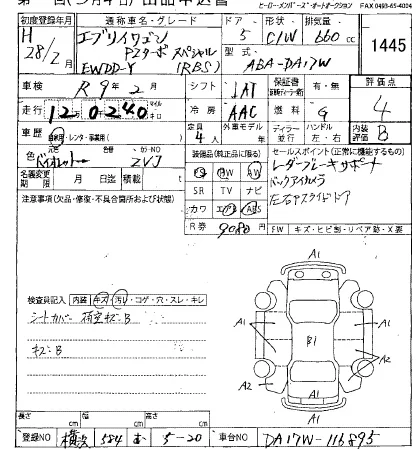 出品申込書
ヒーローメンバーズオートオークション FAX 0493-65-4004
初度登録年月 通称車名・グレード ドア 形状 排気量
H 28/2月 エブリイワゴン 5 C/W 660cc 1445
PZターボスペシャル 型式
EWDD-Y (RBS) ABA-DA17W
車検 R9年2月 シフト IAT 保証書 有・無 評価点 4
走行 120240 マイル キロ 冷房 AAC 燃料 G
車歴 自家用・レンタ・事業用 定員 4人 外車モデル ディーラー 並行 ハンドル 左・右 内装評価 B
色 元色 バイオレット カラーNO ZVJ
装備品(純正品に限る) セールスポイント(正常に機能するもの)
名義変更期限 月 日迄 積載 t
PS PW AW レーダーブレーキサポート
SR TV ナビ バックアイカメラ
カワ エアB ABS 左右パワースライドドア
R券 9080円 FW キズ・ヒビ割・リペア跡・X要
注意事項(欠品・修復・不具合箇所および状態)
A1
A1 B1 A1
A2 A2
A1
検査員記入 内装 キズ・汚レ・コゲ・穴・スレ・キレ
シートカバー 荷室キズB
キズB
長さ cm 幅 cm 高さ cm
登録NO 横浜 584 む 5-20 車台NO DA17W-116895